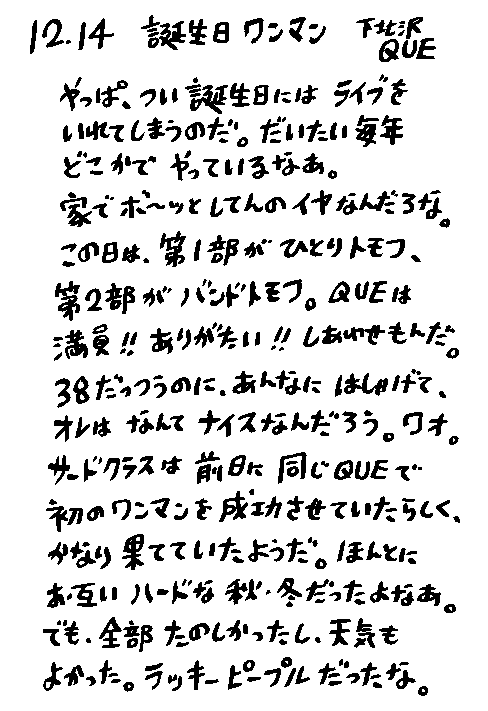 12.14 誕生日ワンマン 下北沢
QUE
やっぱ、つい誕生日には ライブを
いれてしまうのだ。だいたい毎年
どこかで やっているなあ。
家でボ〜ッとしてんのイヤなんだろな。
この日は、第1部が ひとりトモフ、
第2部が バンドトモフ。QUEは
満員!! ありがたい!! しあわせもんだ。
38だっつうのに、あんなに はしゃげて、
オレは なんて ナイスなんだろう。ワオ。
サードクラスは 前日に 同じQUEで
初のワンマンを成功させていたらしく、
かなり果てていたようだ。ほんとに
お互い ハードな 秋・冬だったよなあ。
でも、全部 たのしかったし、天気も
よかった。ラッキーピープルだったな。